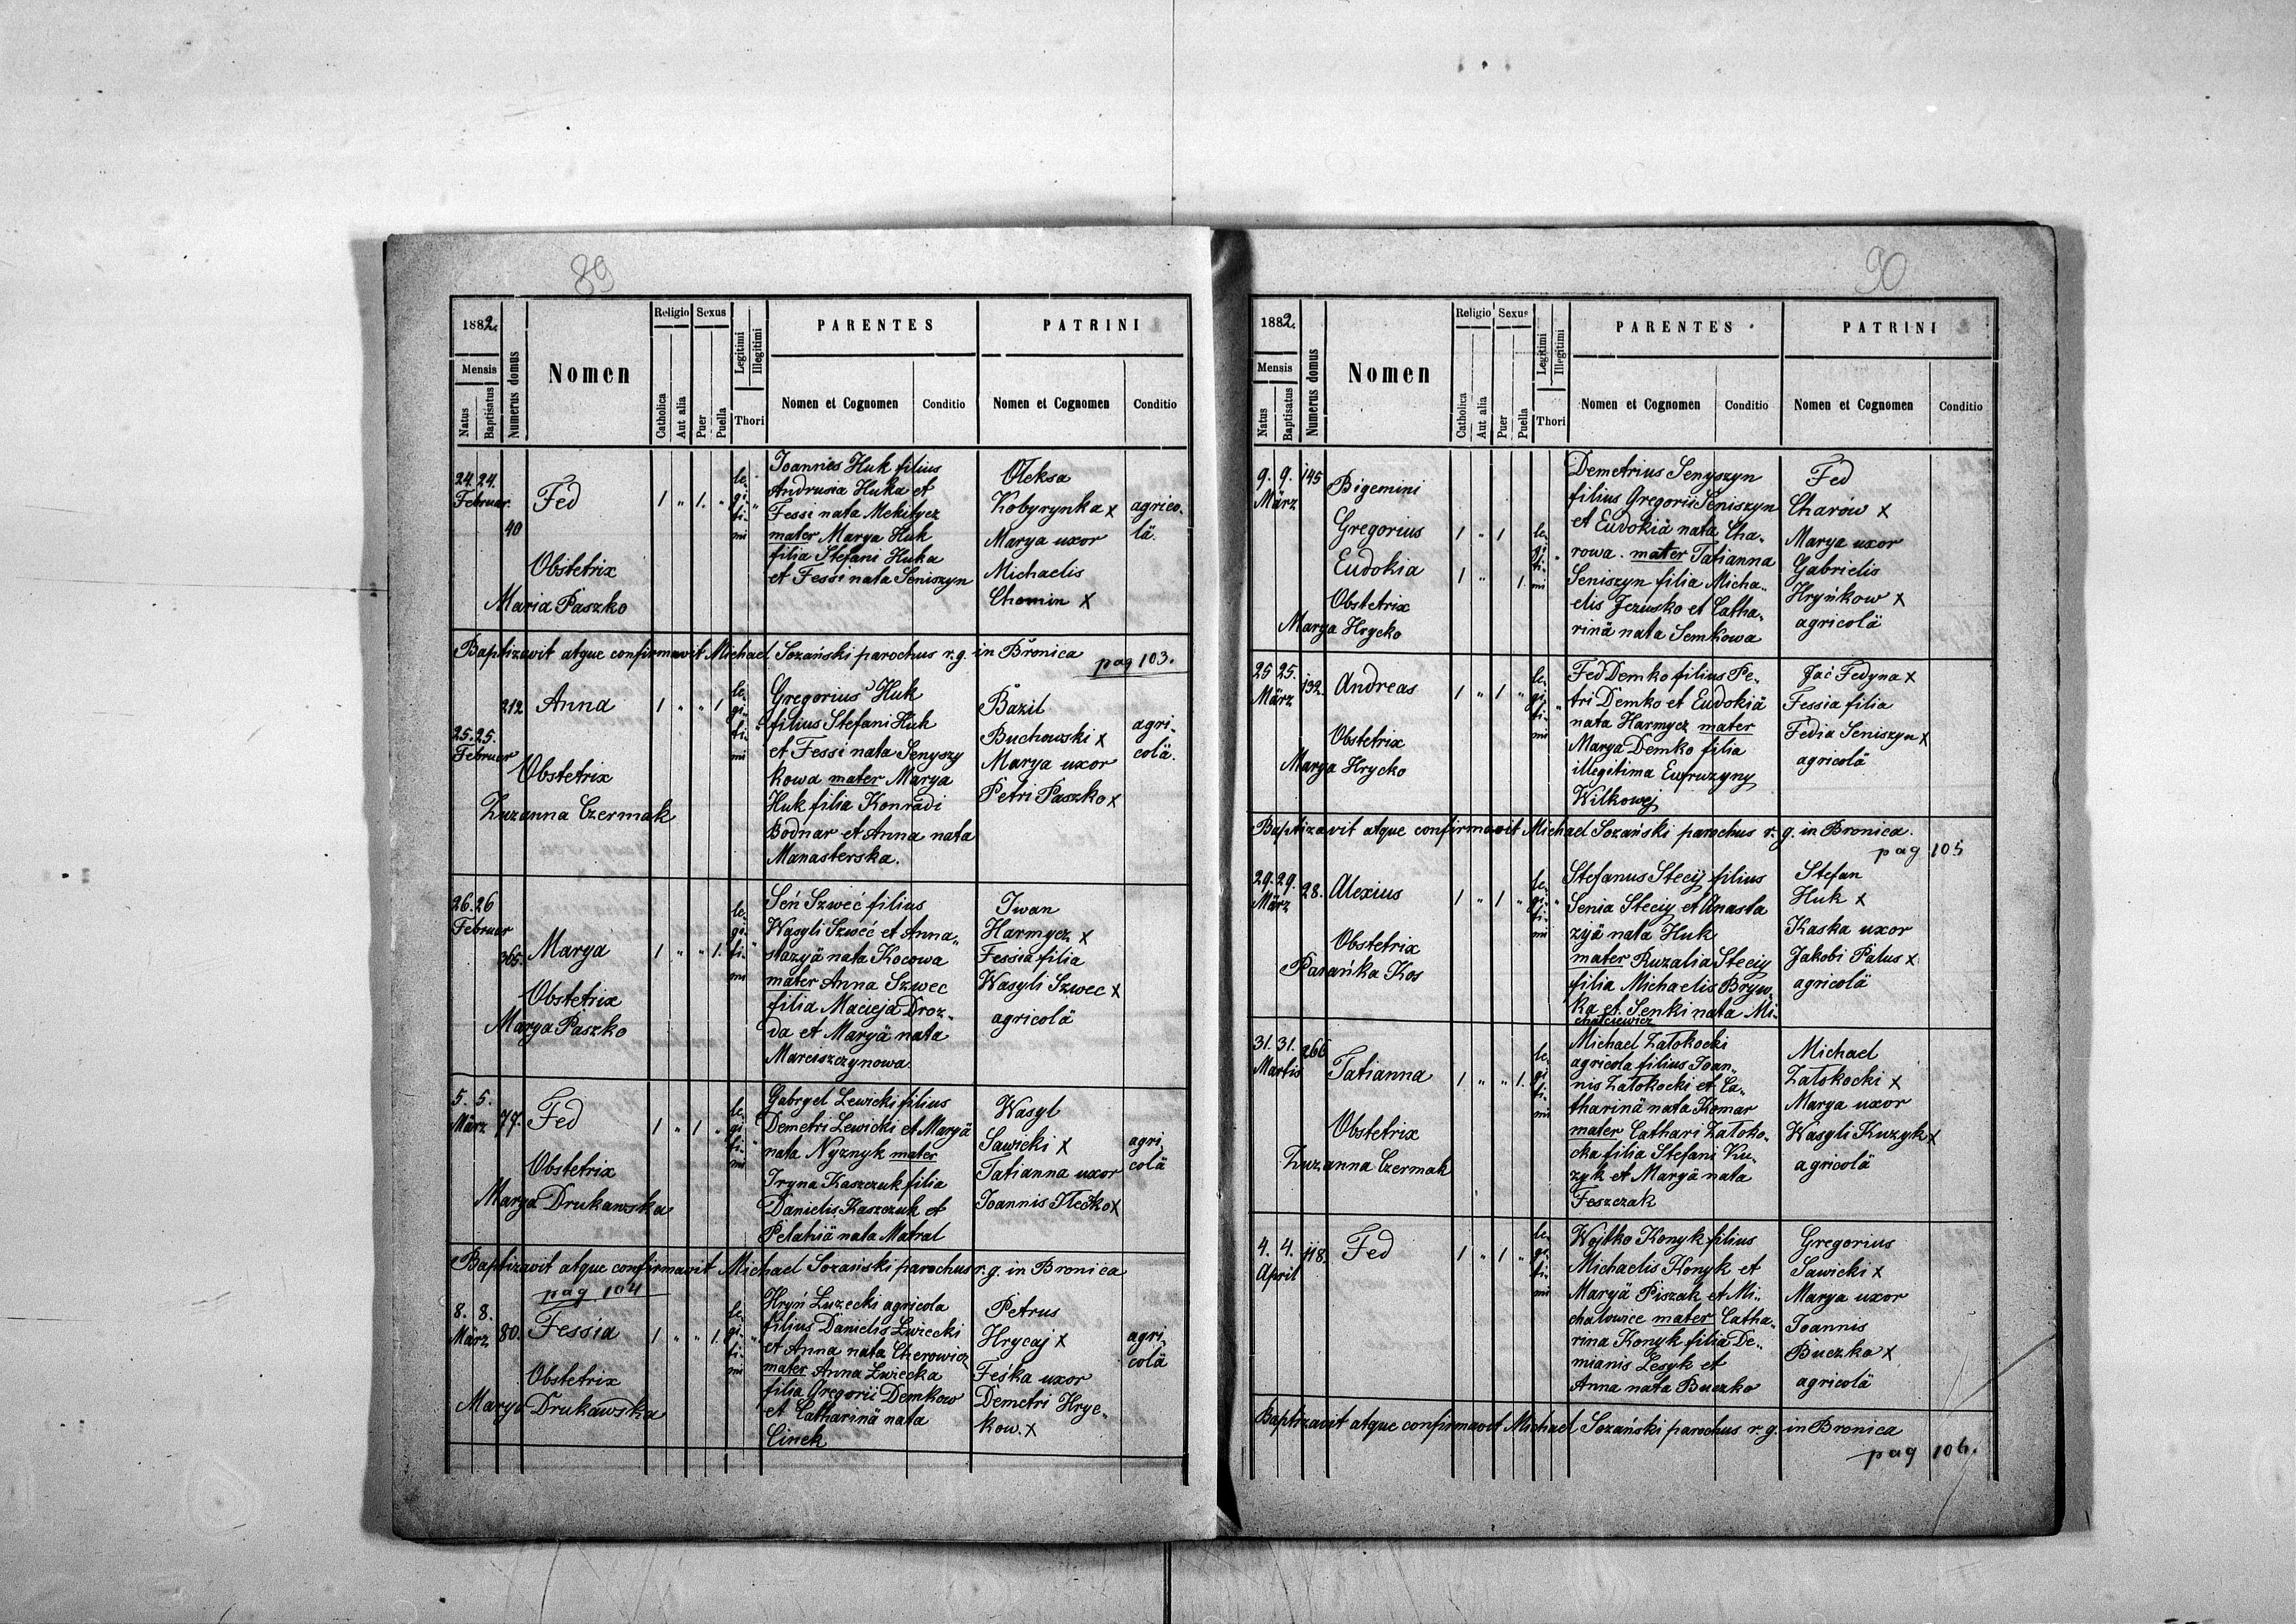 89
1882.
Religio Sexus
PARENTES
PATRINI
Mensis
Natus
Baptisatus
Numerus domus
Nomen
Catholica
Aut alia
Puer
Puella
Legitimi
Illegitimi
Thori
Nomen et Cognomen
Conditio
Nomen et Cognomen
Conditio
24. 24.
Februar
40
Fed
Obstetrix
Maria Paszko
1 " 1. "
le-
gi-
ti-
mi
Joannes Huk filius
Andrusia Huka et
Fessi nata Mekitycz
mater Marya Huk
filia Stefani Huka
et Fessi nata Seniszyn
Oleksa
Kobyrynka x
Marya uxor
Michaelis
Chomin x
agrico-
lä.
Baptizavit atque confirmavit Michael Sozański parochus r. g. in Bronica
pag 103.
25. 25.
Februar
212
Anna
Obstetrix
Zuzanna Czermak
1 " " 1
le-
gi-
ti-
mi
Gregorius Huk
filius Stefani Huk
et Fessi nata Senyszy
kowa mater Marya
Huk filia Konradi
Bodnar et Anna nata
Manasterska.
Bazil
Buchowski x
Marya uxor
Petri Paszko x
agri-
colä.
26. 26
Februar
365.
Marya
Obstetrix
Marya Paszko
1 " " 1.
le-
gi-
ti-
mi
Seń Szweć filius
Wasyli Szweć et Anna-
stazyä nata Kocowa
mater Anna Szwec
filia Macieja Droz-
da et Maryä nata
Marciszczynowa.
Iwan
Harmycz x
Fessia filia
Wasyli Szwec x
agricolä
5. 5.
März
77.
Fed
Obstetrix
Marya Drukawska
1 " 1 "
le-
gi-
ti-
mi
Gabryel Lewicki filius
Demetri Lewicki et Maryä
nata Nyznyk mater
Iryna Kaszczuk filia
Danielis Kaszczuk et
Pelahiä nata Matral
Wasyl
Sawicki x
Tatianna uxor
Joannis x
agri-
colä
Baptizavit atque confirmavit Michael Sozański parochus r. g. in Bronica
pag 104
8. 8.
März
80.
Fessia
Obstetrix
Marya Drukawska
1 " " 1.
le-
gi-
ti-
mi
Hryń Łuzecki agricola
filius Danielis Łuzecki
et Anna nata Czerowicz
mater Anna Łuzecka
filia Gregorii Demkow
et Catharinä nata
Cinek
Petrus
Hrycaj x
Feśka uxor
Demetri Hryc-
kow. x
agri-
colä
90
1882.
Religio Sexus
PARENTES
PATRINI
Mensis
Natus
Baptisatus
Numerus domus
Nomen
Catholica
Aut alia
Puer
Puella
Legitimi
Illegitimi
Thori
Nomen et Cognomen
Conditio
Nomen et Cognomen
Conditio
9. 9.
März
145
Bigemini
Gregorius
Eudokia
Obstetrix
Marya Hrycko
1 " 1
1 " 1.
le-
gi-
ti-
mi
Demetrius Senyszyn
filius Gregorii Seniszyn
et Eudokiä nata Cha-
rowa. mater Tatianna
Seniszyn filia Micha-
elis Jezusko et Catha-
rinä nata Semkowa
Fed
Charów x
Marya uxor
Gabrielis
Hryńkow x
agricolä
25 25.
März
132.
Andreas
Obstetrix
Marya Hrycko
1 " 1 "
le-
gi-
ti-
mi
Fed Demko filius Pe-
tri Demko et Eudokiä
nata Harmycz mater
Marya Demko filia
illegitima Eufruzyny
Wilkowej
Jać Fedyna x
Fessia filia
Fedia Seniszyn x
agricolä
Baptizavit atque confirmavit Michael Sozański parochus r. g. in Bronica.
pag 105
29. 29.
März
28.
Alexius
Obstetrix
Parańka Kos
1 " 1 "
le-
gi-
ti-
mi
Stefanus Steciy filius
Senia Steciy et Anasta
zyä nata Huk
mater Ruzalia Steciy
filia Michaelis Bryn-
ka et Senki nata Mi-
chalciewicz
Stefan
Huk x
Kaska uxor
Jakobi Palus x
agricolä
31. 31.
Martis
266
Tatianna
Obstetrix
Zuzanna Czermak
1 " " 1.
le-
gi-
ti-
mi
Michael Zatokocki
agricola filius Joan-
nis Zatokocki et Ca-
tharinä nata Komar
mater Cathari Zatoko-
cka filia Stefani Ku-
zyk et Maryä nata
Feszczak
Michael
Zatokocki x
Marya uxor
Wasyli Kuzyk x
agricolä
4. 4.
April
118.
Fed
1 " 1 "
le-
gi-
ti-
mi
Wojtko Konyk filius
Michaelis Konyk et
Maryä Piszak et Mi-
chalowice mater Catha-
rina Konyk filia De-
mianis Lesyk et
Anna nata Buczko
Gregorius
Sawicki x
Marya uxor
Joannis
Buczko x
agricolä
Baptizavit atque confirmavit Michael Sozański parochus r. g. in Bronica
pag 106.